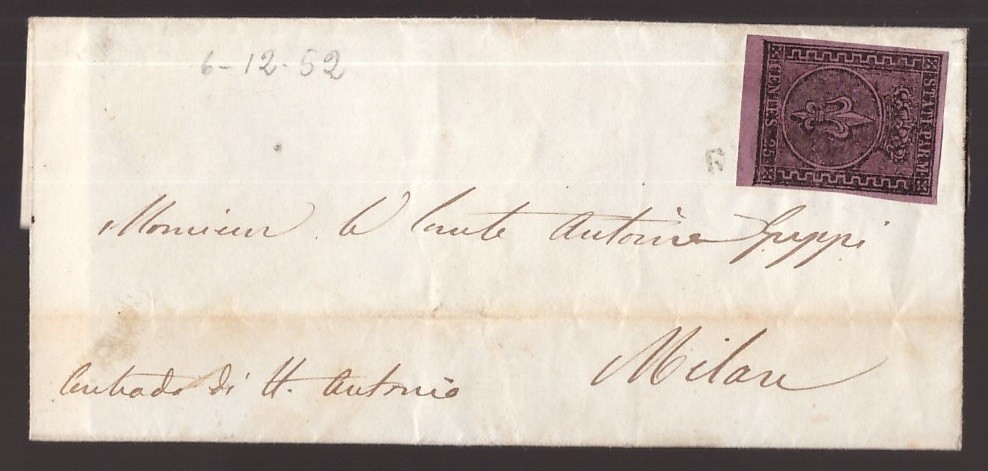 6-12-52
STATI PARM.
CENTES. 25
Monsieur le Comte Antoine
Milan
Contrada di St. Antonio